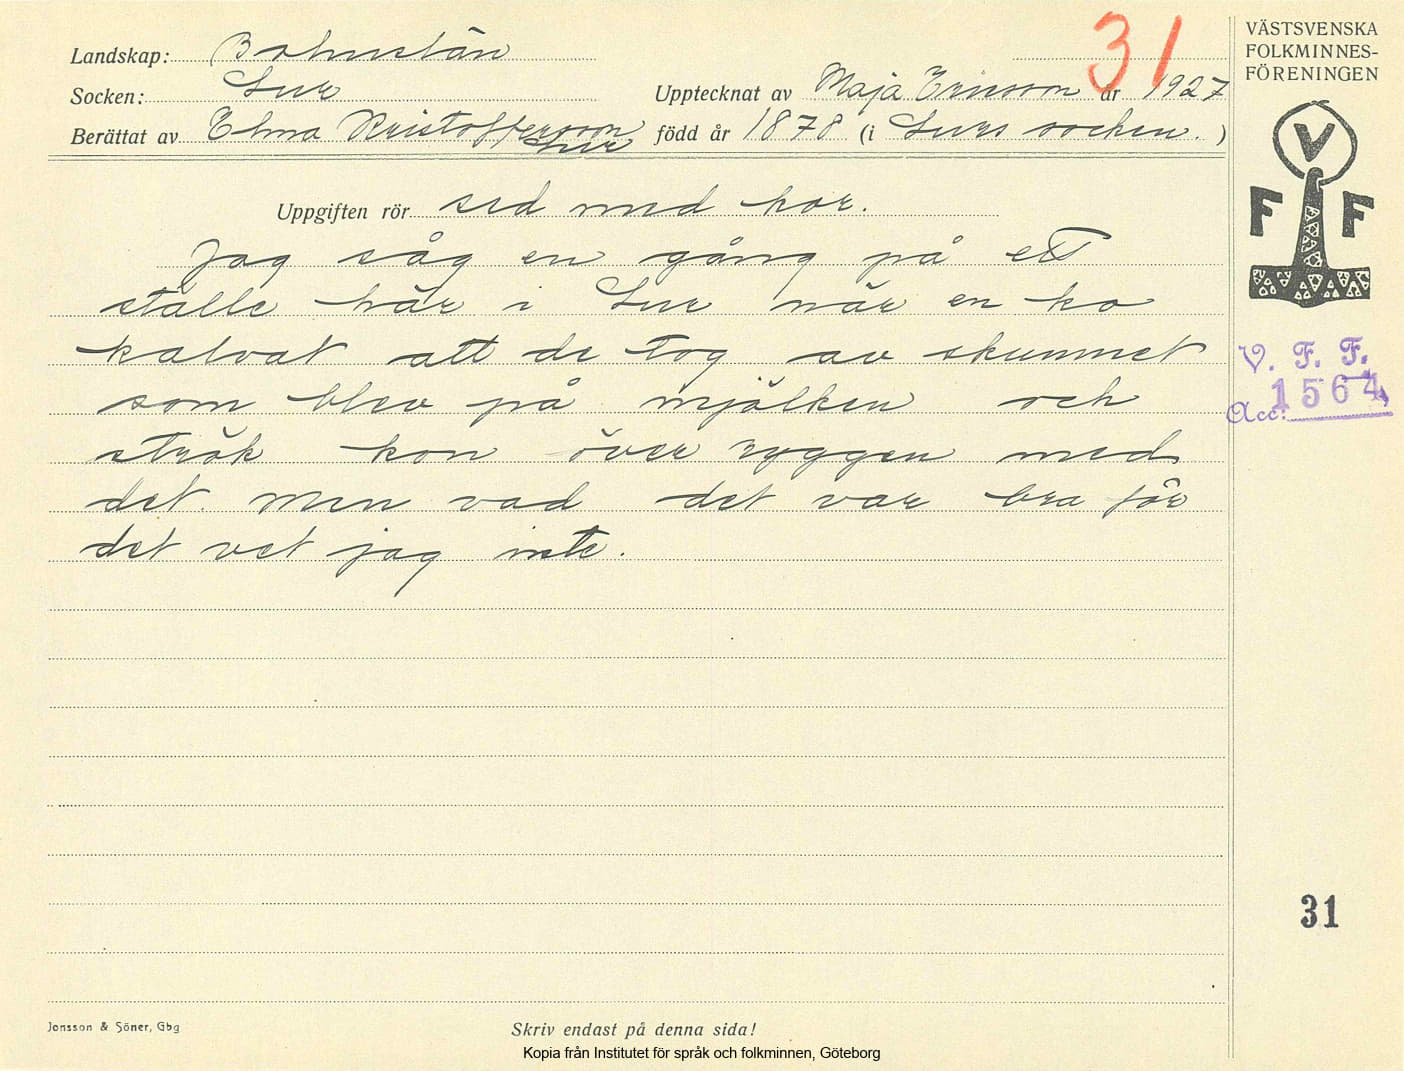 Landskap: Bohuslän
Socken: Lur
Upptecknat av Maja Ericsson år 1927
Berättat av Elma Kristofferson född år 1878 (i Lurs socken. )
Lur
31
VÄSTSVENSKA
FOLKMINNES-
FÖRENINGEN
V
F F
Uppgiften rör sed med kor.
Jag såg en gång på ett
ställe här i Lur när en ko
kalvat att de tog av skummet
som blev på mjölken och
strök kon över ryggen med
det. Men vad det var bra för
det vet jag inte.
V. F. F.
Acc: 1564
31
Jonsson & Söner, Gbg
Skriv endast på denna sida!
Kopia från Institutet för språk och folkminnen, Göteborg